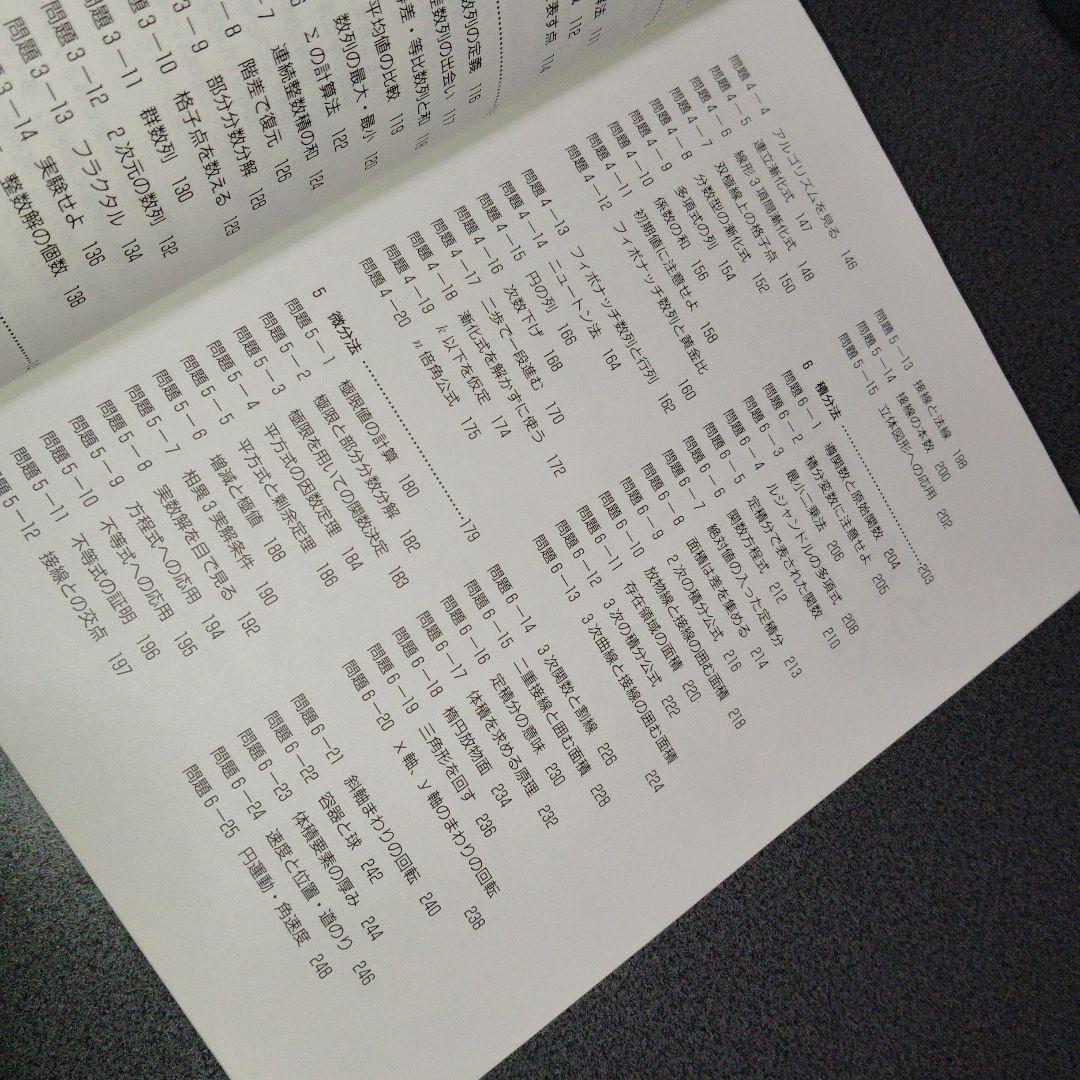 法 111
112
表す点 114
数列の定義 116
差数列の出会い 117
差・等比数列と和 118
平均値の比較 119
数列の最大・最小 120
Σの計算法 122
連続整数積の和 124
—7 階差で復元 126
—8 部分分数分解 128
3—9 格子点を数える 129
3—10 群数列 130
問題3—11 2次元の数列 132
問題3—12 フラクタル 134
問題3—13 実験せよ 136
3—14 整数解の個数 138
問題4—4 アルゴリズムを見る 146
問題4—5 連立漸化式 147
問題4—6 線形3項間漸化式 148
問題4—7 双極線上の格子点 150
問題4—8 分数型の漸化式 152
問題4—9 多項式の列 154
問題4—10 係数の和 156
問題4—11 初期値に注意せよ 158
問題4—12 フィボナッチ数列と黄金比 160
問題4—13 フィボナッチ数列と行列 162
問題4—14 ニュートン法 164
問題4—15 円の列 166
問題4—16 次数下げ 168
問題4—17 二歩で一段進む 170
問題4—18 漸化式を解かずに使う 172
問題4—19 k以下を仮定 174
問題4—20 n倍角公式 175
5 微分法 ……………………179
問題5—1 極限値の計算 180
問題5—2 極限と部分分数分解 182
問題5—3 極限を用いての関数決定 183
問題5—4 平方式の因数定理 184
問題5—5 平方式と剰余定理 186
問題5—6 増減と極値 188
問題5—7 相異3実解条件 190
問題5—8 実数解を目で見る 192
問題5—9 方程式への応用 194
問題5—10 不等式への応用 195
問題5—11 不等式の証明 196
問題5—12 接線との交点 197
問題5—13 接線と法線 198
問題5—14 接線の本数 200
問題5—15 立体図形への応用 202
6 積分法 ……………………203
問題6—1 導関数と原始関数 204
問題6—2 積分変数に注意せよ 205
問題6—3 最小二乗法 206
問題6—4 ルジャンドルの多項式 208
問題6—5 定積分で表された関数 210
問題6—6 関数方程式 212
問題6—7 絶対値の入った定積分 213
問題6—8 面積は差を集める 214
問題6—9 2次の積分公式 216
問題6—10 放物線と接線の囲む面積 218
問題6—11 存在領域の面積 220
問題6—12 3次の積分公式 222
問題6—13 3次曲線と接線の囲む面積 224
問題6—14 3次関数と割線 226
問題6—15 二重接線と囲む面積 228
問題6—16 定積分の意味 230
問題6—17 体積を求める原理 232
問題6—18 楕円放物面 234
問題6—19 三角形を回す 236
問題6—20 x軸、y軸のまわりの回転 238
問題6—21 斜軸まわりの回転 240
問題6—22 容器と球 242
問題6—23 体積要素の厚み 244
問題6—24 速度と位置・道のり 246
問題6—25 円運動・角速度 248